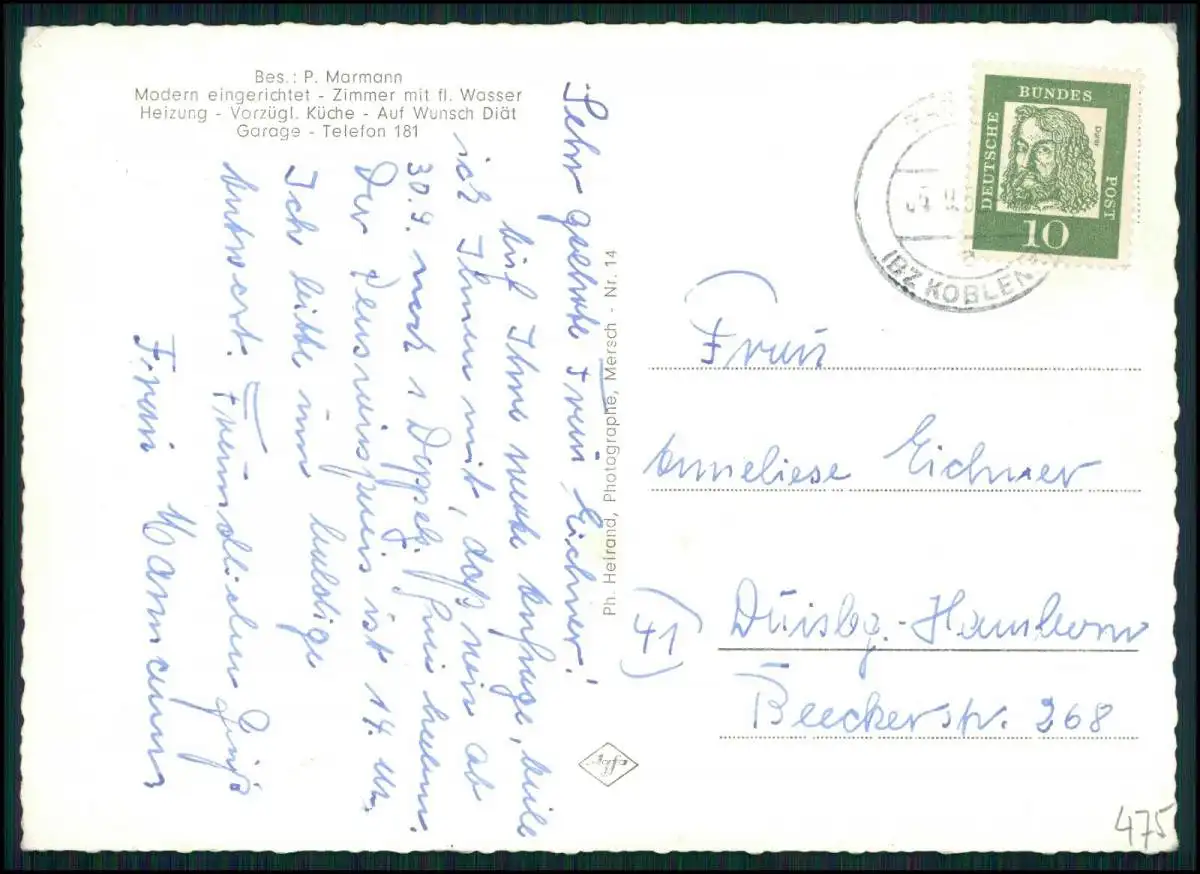 Bes.: P. Marmann
Modern eingerichtet - Zimmer mit fl. Wasser
Heizung - Vorzügl. Küche - Auf Wunsch Diät
Garage - Telefon 181
Sehr geehrte Frau Eichner!
Auf Ihre werte Anfrage, teile
ich Ihnen mit, daß wir ab
30.9. noch 1 Doppelz. frei haben.
Der Pensionspreis ist 14. M.
Ich bitte um baldige
Antwort. Freundlichen Gruß
Frau Marmann
Ph. Helrand, Photographe, Mersch - Nr. 14
DEUTSCHE
BUNDES
POST
Dürer
10
(BZ KOBLEN
Frau
Anneliese Eichner
(41) Duisbg.-Hamborn
Beeckerstr. 268
475